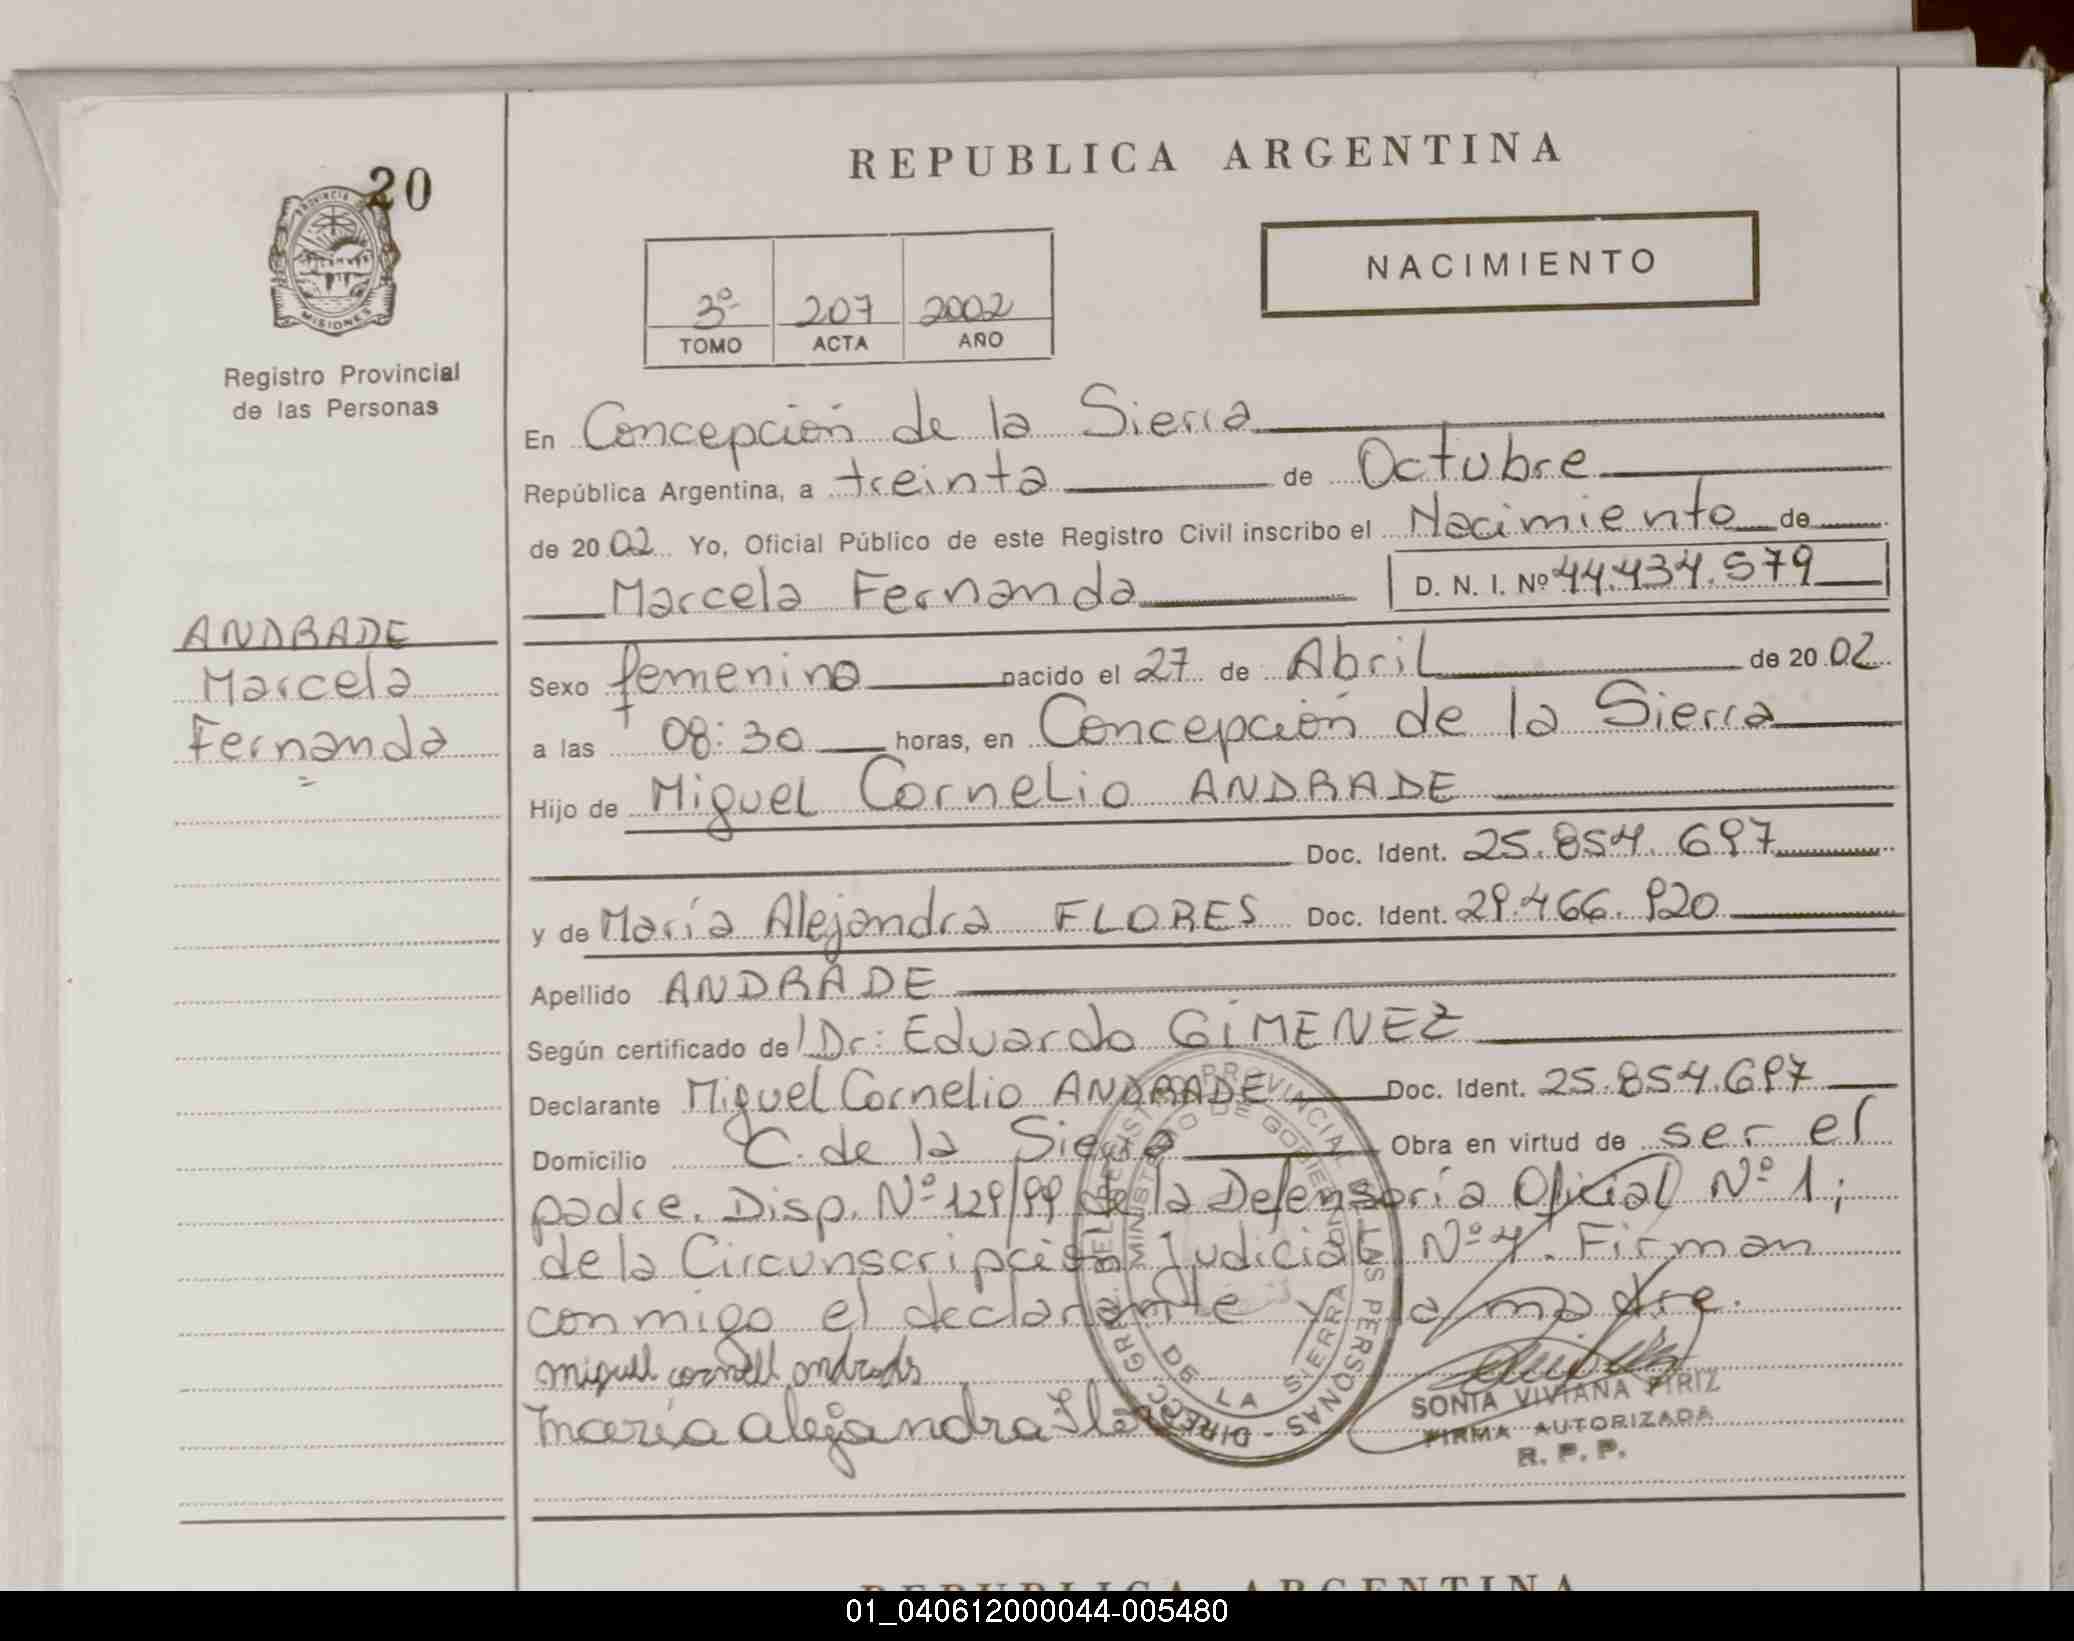 20
PROVINCIA DE
MISIONES
Registro Provincial
de las Personas
ANDRADE
Marcela
Fernanda
REPUBLICA ARGENTINA
NACIMIENTO
3º 207 2002
TOMO ACTA AÑO
En Concepción de la Sierra
República Argentina, a treinta de Octubre
de 2002 Yo, Oficial Público de este Registro Civil inscribo el Nacimiento de
Marcela Fernanda D. N. I. Nº 44.434.579
Sexo femenino nacido el 27 de Abril de 2002
a las 08:30 horas, en Concepción de la Sierra
Hijo de Miguel Cornelio ANDRADE
Doc. Ident. 25.854.697
y de María Alejandra FLORES Doc. Ident. 29.466.920
Apellido ANDRADE
Según certificado de Dr: Eduardo GIMENEZ
Declarante Miguel Cornelio ANDRADE Doc. Ident. 25.854.697
Domicilio C. de la Sierra Obra en virtud de ser el
padre. Disp. Nº 129/99 de la Defensoría Oficial Nº 1;
de la Circunscripción Judicial Nº 4. Firman
conmigo el declarante y la madre.
miguel cornell andrade
maría alejandra
DIRECC. GRAL. DEL REGISTRO PROVINCIAL DE LAS PERSONAS -
MINISTERIO DE GOBIERNO
DE LA SIERRA
SONIA VIVIANA PIRIZ
FIRMA AUTORIZADA
R. P. P.
REPUBLICA ARGENTINA
01_040612000044-005480